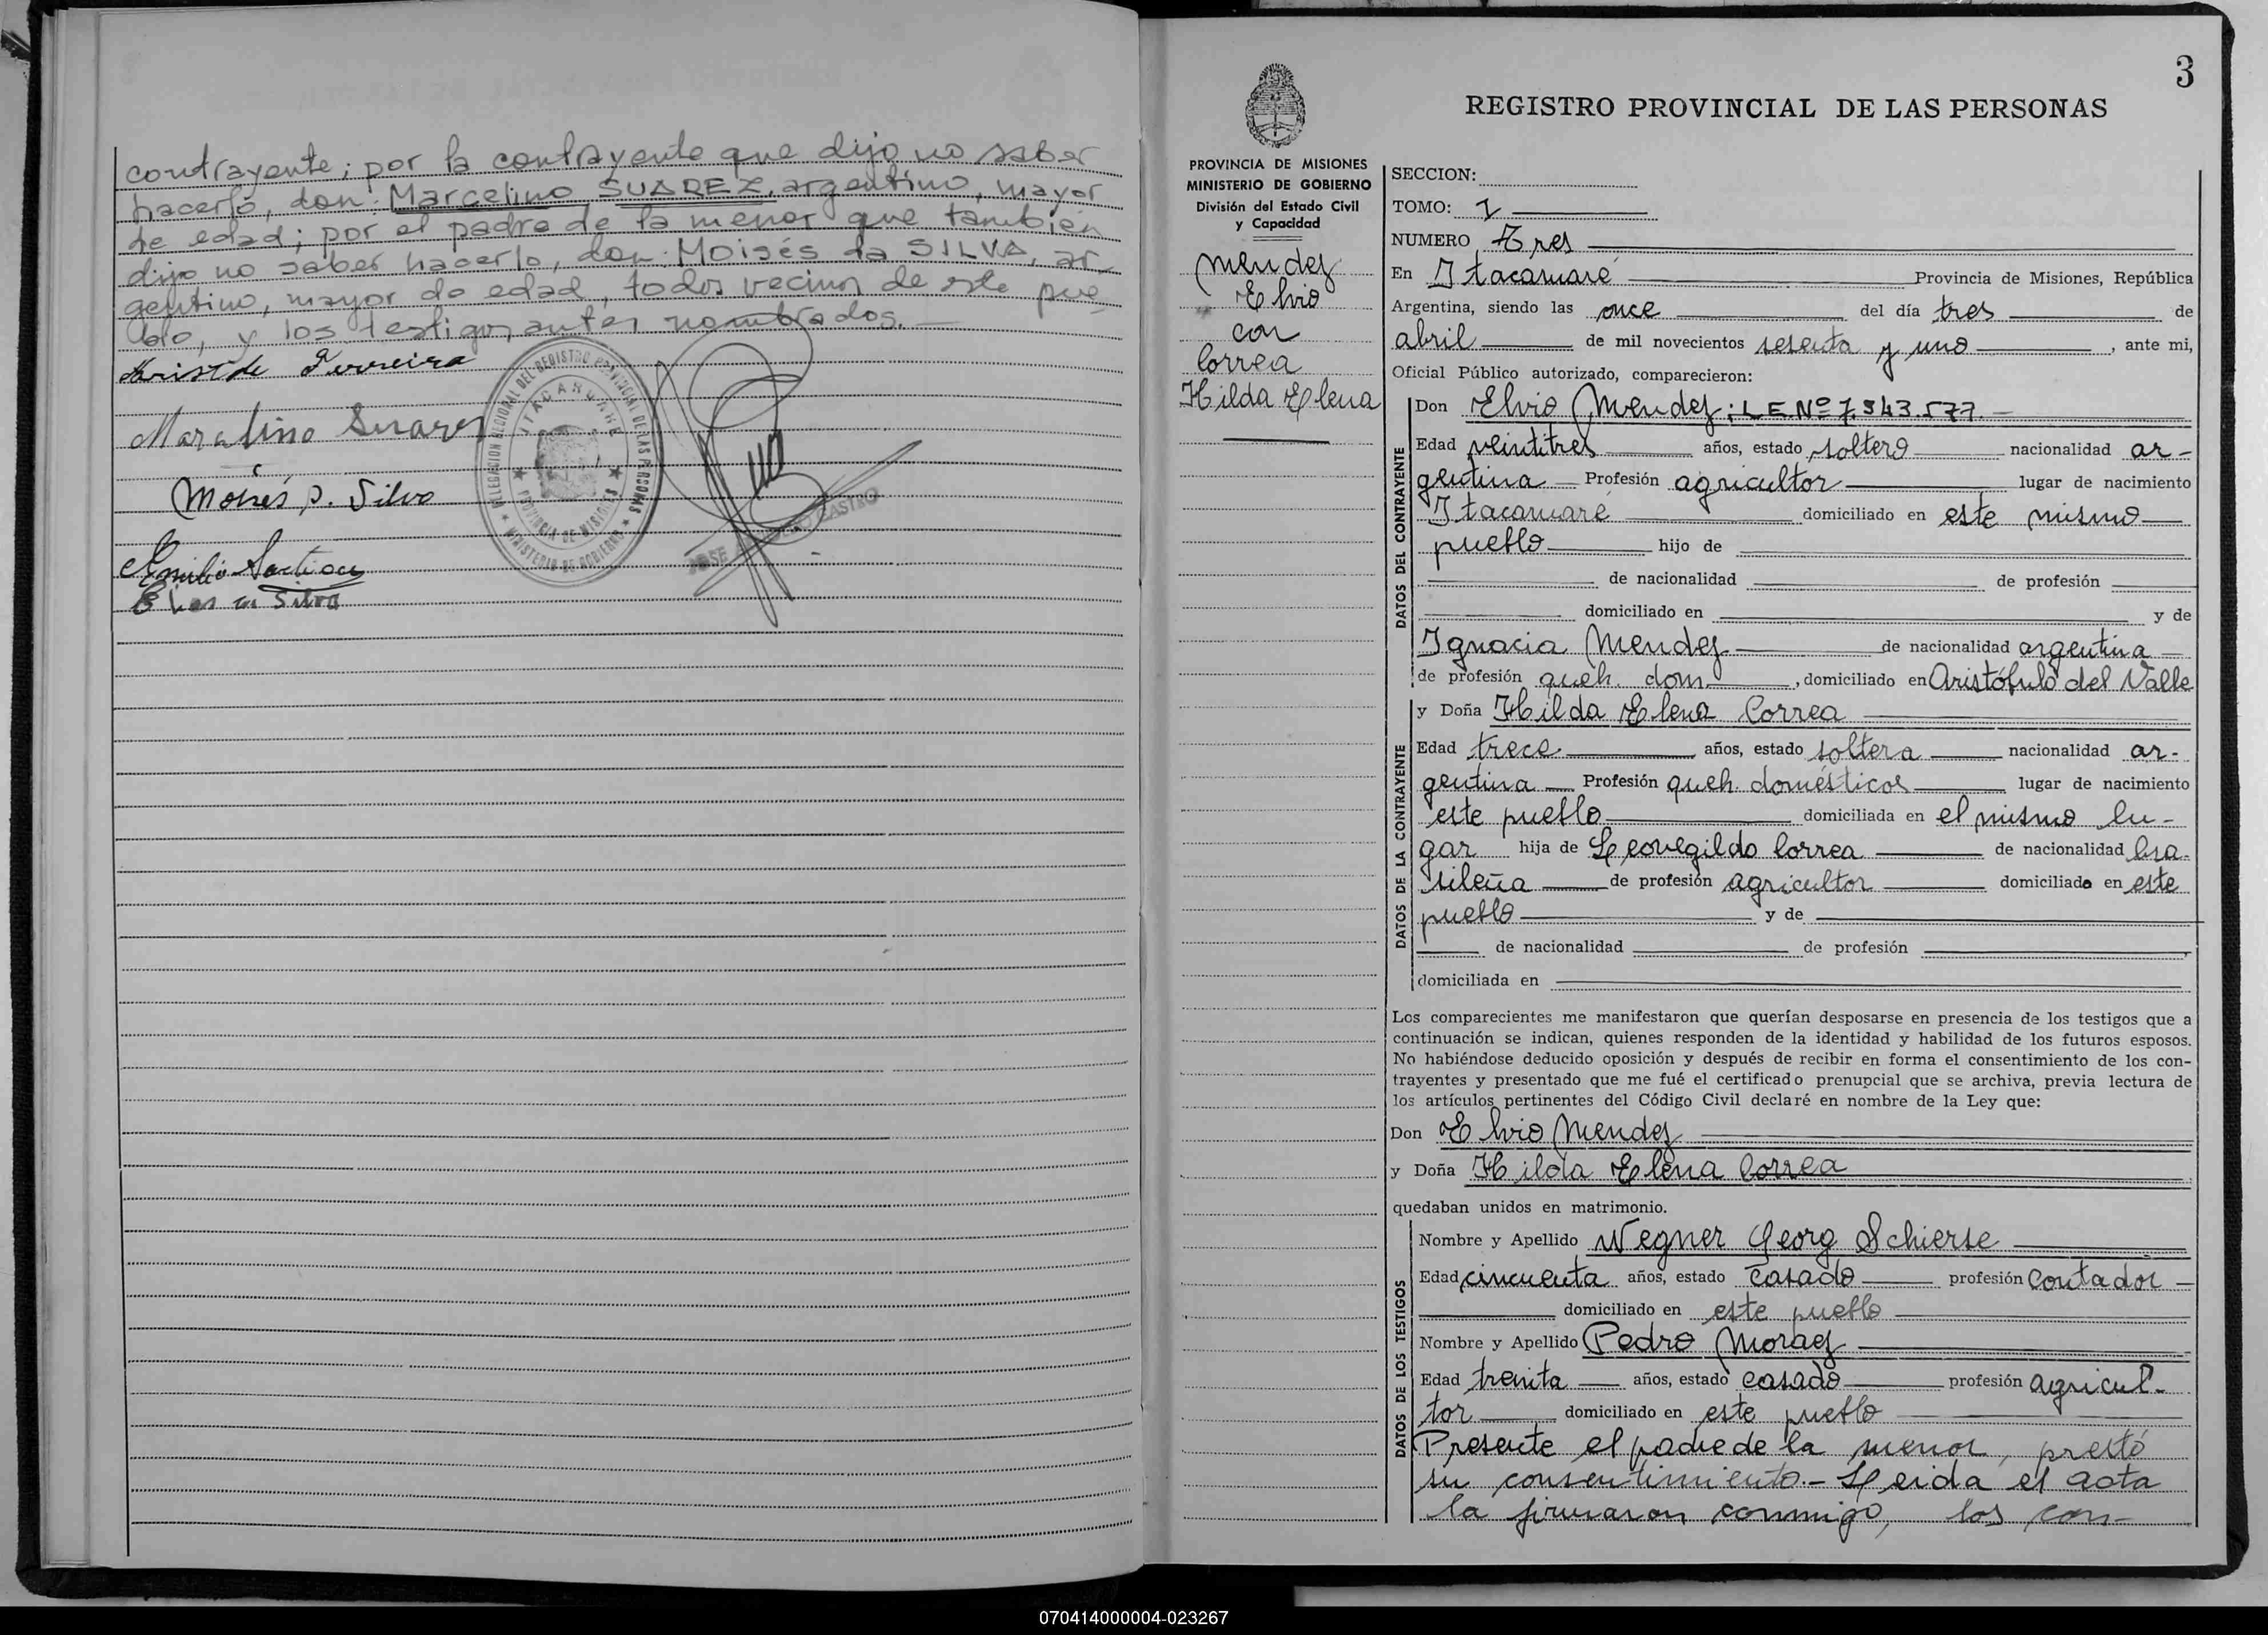 contrayente; por la contrayente que dijo no saber
hacerlo, don: Marcelino SUAREZ, argentino, mayor
de edad; por el padre de la menor que también
dijo no saber hacerlo, don Moisés da SILVA, ar-
gentino, mayor de edad, todos vecinos de este pue-
blo, y los testigos antes nombrados.—
Ferreira
Marcelino Suarez
Moisés D. Silva
Emilio
Elias da Silva
DELEGACION REGIONAL DEL REGISTRO PROVINCIAL DE LAS PERSONAS
ITACARUARE
PROVINCIA DE MISIONES
MINISTERIO DE GOBIERNO
JOSE CASTRO
3
REGISTRO PROVINCIAL DE LAS PERSONAS
PROVINCIA DE MISIONES
MINISTERIO DE GOBIERNO
División del Estado Civil
y Capacidad
Mendez
Elvio
con
Correa
Hilda Elena
SECCION:
TOMO: I
NUMERO Tres
En Itacaruaré Provincia de Misiones, República
Argentina, siendo las once del día tres de
abril de mil novecientos sesenta y uno, ante mi,
Oficial Público autorizado, comparecieron:
DATOS DEL CONTRAYENTE
Don Elvio Mendez; L E Nº 7.543.577.—
Edad veintitres años, estado soltero nacionalidad ar-
gentina Profesión agricultor lugar de nacimiento
Itacaruaré domiciliado en este mismo
pueblo hijo de
de nacionalidad de profesión
domiciliado en y de
Ignacia Mendez de nacionalidad argentina
de profesión queh. dom., domiciliado en Aristófulo del Valle
DATOS DE LA CONTRAYENTE
y Doña Hilda Elena Correa
Edad trece años, estado soltera nacionalidad ar-
gentina Profesión queh. domésticos lugar de nacimiento
este pueblo domiciliada en el mismo lu-
gar hija de Leovegildo Correa de nacionalidad bra-
sileña de profesión agricultor domiciliado en este
pueblo y de
de nacionalidad de profesión
domiciliada en
Los comparecientes me manifestaron que querían desposarse en presencia de los testigos que a
continuación se indican, quienes responden de la identidad y habilidad de los futuros esposos.
No habiéndose deducido oposición y después de recibir en forma el consentimiento de los con-
trayentes y presentado que me fué el certificado prenupcial que se archiva, previa lectura de
los artículos pertinentes del Código Civil declaré en nombre de la Ley que:
Don Elvio Mendez
y Doña Hilda Elena Correa
quedaban unidos en matrimonio.
DATOS DE LOS TESTIGOS
Nombre y Apellido Wegner Georg Schierse
Edad cincuenta años, estado casado profesión contador
domiciliado en este pueblo
Nombre y Apellido Pedro Moraez
Edad treinta años, estado casado profesión agricul-
tor domiciliado en este pueblo
Presente el padre de la menor, prestó
su consentimiento.- Leida el acta
la firmaron conmigo, los con-
070414000004-023267